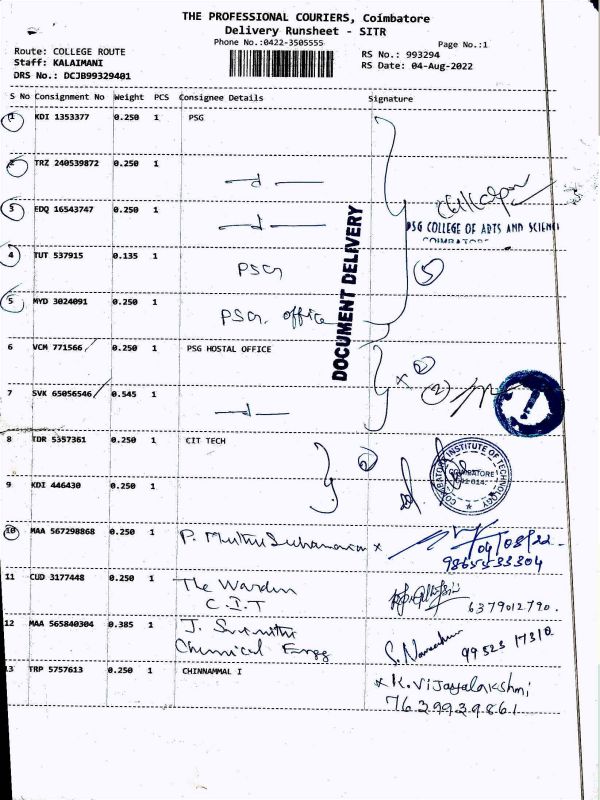 THE PROFESSIONAL COURIERS, Coimbatore
Delivery Runsheet - SITR
Phone No.:0422-3505555
Page No.:1
Route: COLLEGE ROUTE
RS No.: 993294
Staff: KALAIMANI
RS Date: 04-Aug-2022
DRS No.: DCJB99329401
S No Consignment No Weight PCS Consignee Details Signature
1 KDI 1353377 0.250 1 PSG
2 TRZ 240539872 0.250 1
3 EDQ 16543747 0.250 1
PSG COLLEGE OF ARTS AND SCIENC
COIMBATORE
4 TUT 537915 0.135 1 PSG
5
5 MYD 3024091 0.250 1 PSG office
DOCUMENT DELIVERY
6 VCM 771566 0.250 1 PSG HOSTAL OFFICE
2
7 SVK 65056546 0.545 1
2
8 TDR 5357361 0.250 1 CIT TECH
2
COIMBATORE INSTITUTE OF TECHNOLOGY
COIMBATORE
641 014
9 KDI 446430 0.250 1
10 MAA 567298868 0.250 1 P. Muthu x
04/08/22
9865533304
11 CUD 3177448 0.250 1 The Warden
C.I.T
6379012790.
12 MAA 565840304 0.385 1 J.
Chemical Engg
S.
99523 17310
13 TRP 5757613 0.250 1 CHINNAMMAL I
x K. Vijayalakshmi
7639939861